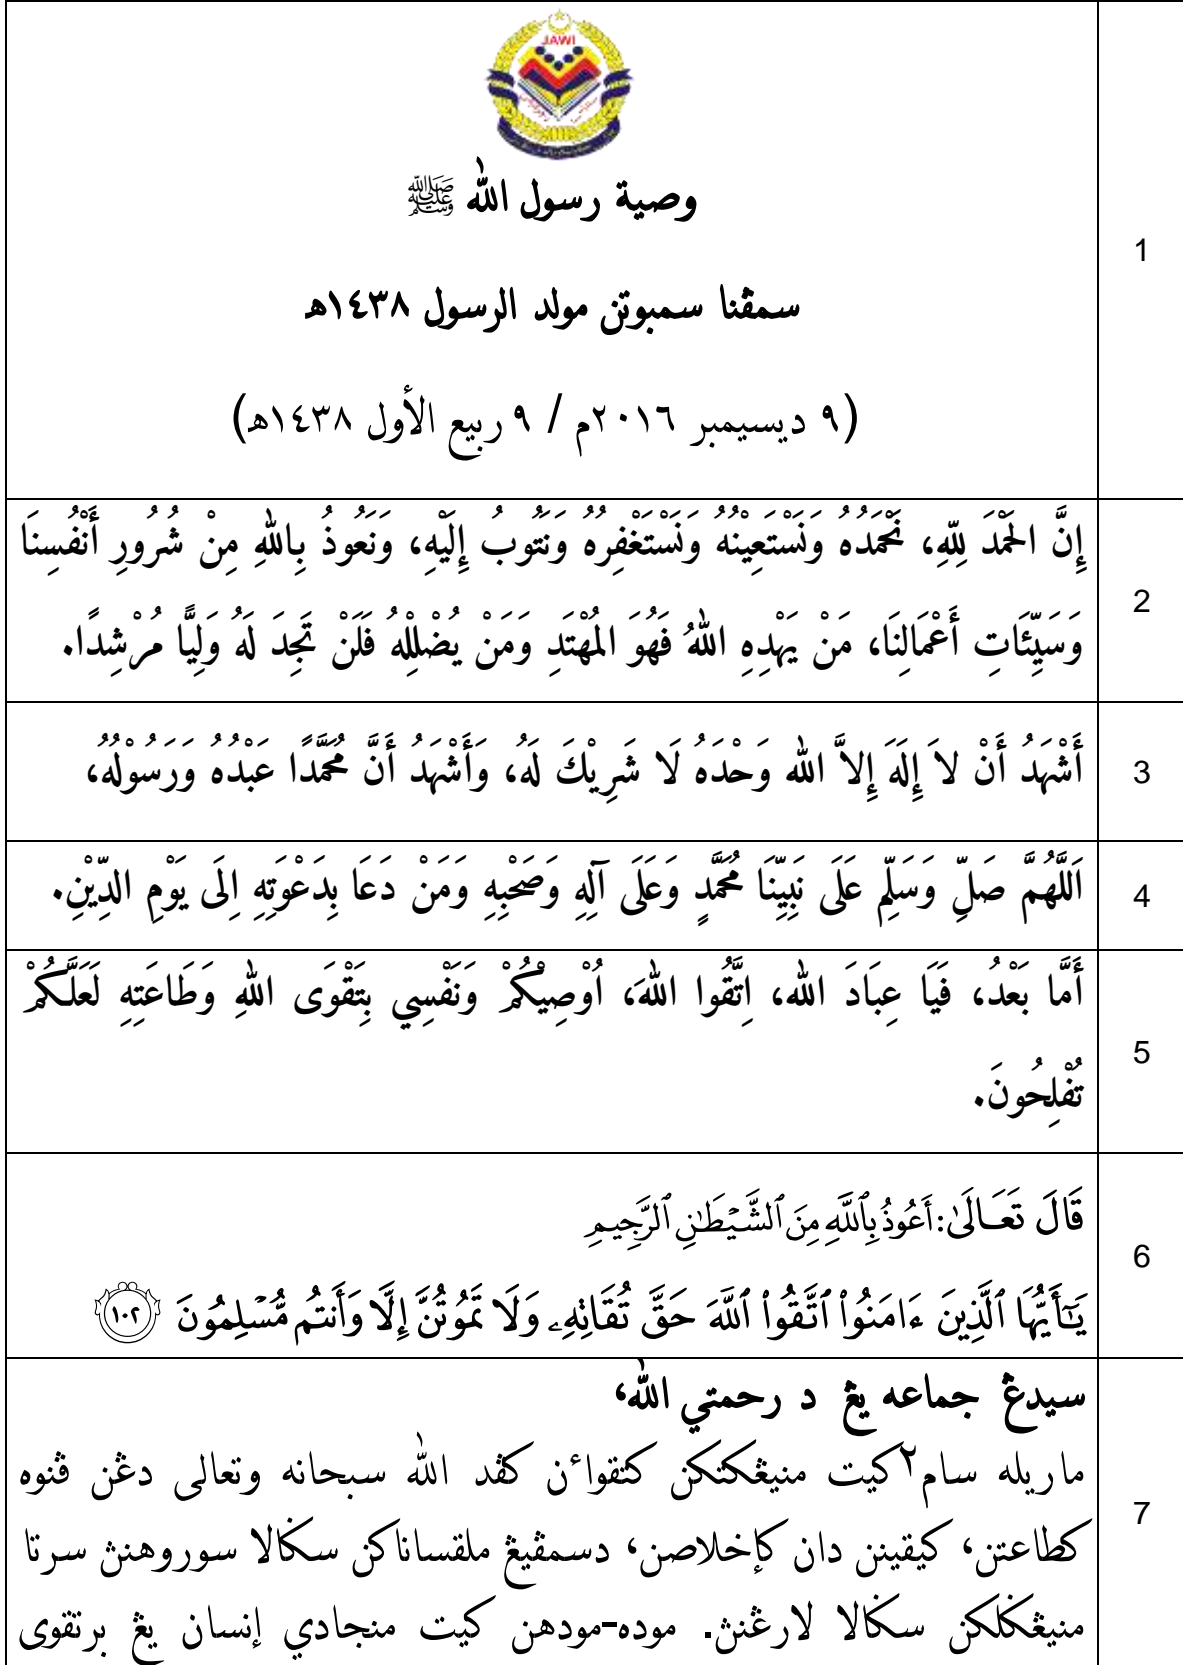 JAWI
وصية رسول الله ﷺ
سمڤنا سمبوتن مولد الرسول ١٤٣٨ھ
(٩ ديسيمبر ٢٠١٦م / ٩ ربيع الأول ١٤٣٨ھ)
1
إِنَّ الْحَمْدَ لِلّٰهِ، نَحْمَدُهُ وَنَسْتَعِيْنُهُ وَنَسْتَغْفِرُهُ وَنَتُوبُ إِلَيْهِ، وَنَعُوذُ بِاللّٰهِ مِنْ شُرُورِ أَنْفُسِنَا
وَسَيِّئَاتِ أَعْمَالِنَا، مَنْ يَهْدِهِ اللّٰهُ فَهُوَ الْمُهْتَدِ وَمَنْ يُضْلِلْهُ فَلَنْ تَجِدَ لَهُ وَلِيًّا مُرْشِدًا.
2
أَشْهَدُ أَنْ لاَ إِلَهَ إِلاَّ الله وَحْدَهُ لَا شَرِيْكَ لَهُ، وَأَشْهَدُ أَنَّ مُحَمَّدًا عَبْدُهُ وَرَسُوْلُهُ،
3
اَللَّهُمَّ صَلِّ وَسَلِّم عَلَى نَبِيِّنَا مُحَمَّدٍ وَعَلَى آلِهِ وَصَحْبِهِ وَمَنْ دَعَا بِدَعْوَتِهِ اِلَى يَوْمِ الدِّيْنِ.
4
أَمَّا بَعْدُ، فَيَا عِبَادَ الله، اِتَّقُوا اللهَ، اُوْصِيْكُمْ وَنَفْسِي بِتَقْوَى اللهِ وَطَاعَتِهِ لَعَلَّكُمْ
تُفْلِحُونَ.
5
قَالَ تَعَالَىٰ: أَعُوذُ بِٱللَّهِ مِنَ ٱلشَّيْطَٰنِ ٱلرَّجِيمِ
يَٰٓأَيُّهَا ٱلَّذِينَ ءَامَنُوا۟ ٱتَّقُوا۟ ٱللَّهَ حَقَّ تُقَاتِهِۦ وَلَا تَمُوتُنَّ إِلَّا وَأَنتُم مُّسْلِمُونَ ١٠٢
6
سيدڠ جماعه يڠ د رحمتي الله،
ماريله سام٢ كيت منيڠكتكن كتقواءن كڤد الله سبحانه وتعالى دڠن ڤنوه
كطاعتن، كيقينن دان كإخلاصن، دسمڤيڠ ملقساناكن سݢالا سوروهنڽ سرتا
منيڠݢلكن سݢالا لارڠنڽ. موده-مودهن كيت منجادي إنسان يڠ برتقوى
7